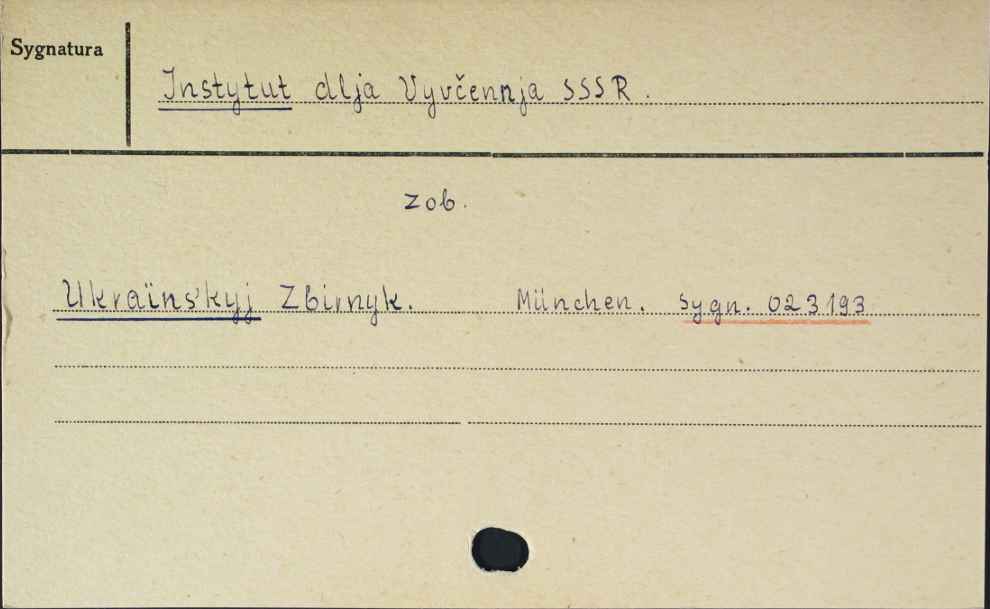 Sygnatura
Instytut dlja Vyvčennja SSSR.
zob.
Ukraïns'kyj Zbirnyk. München. Sygn. 023193